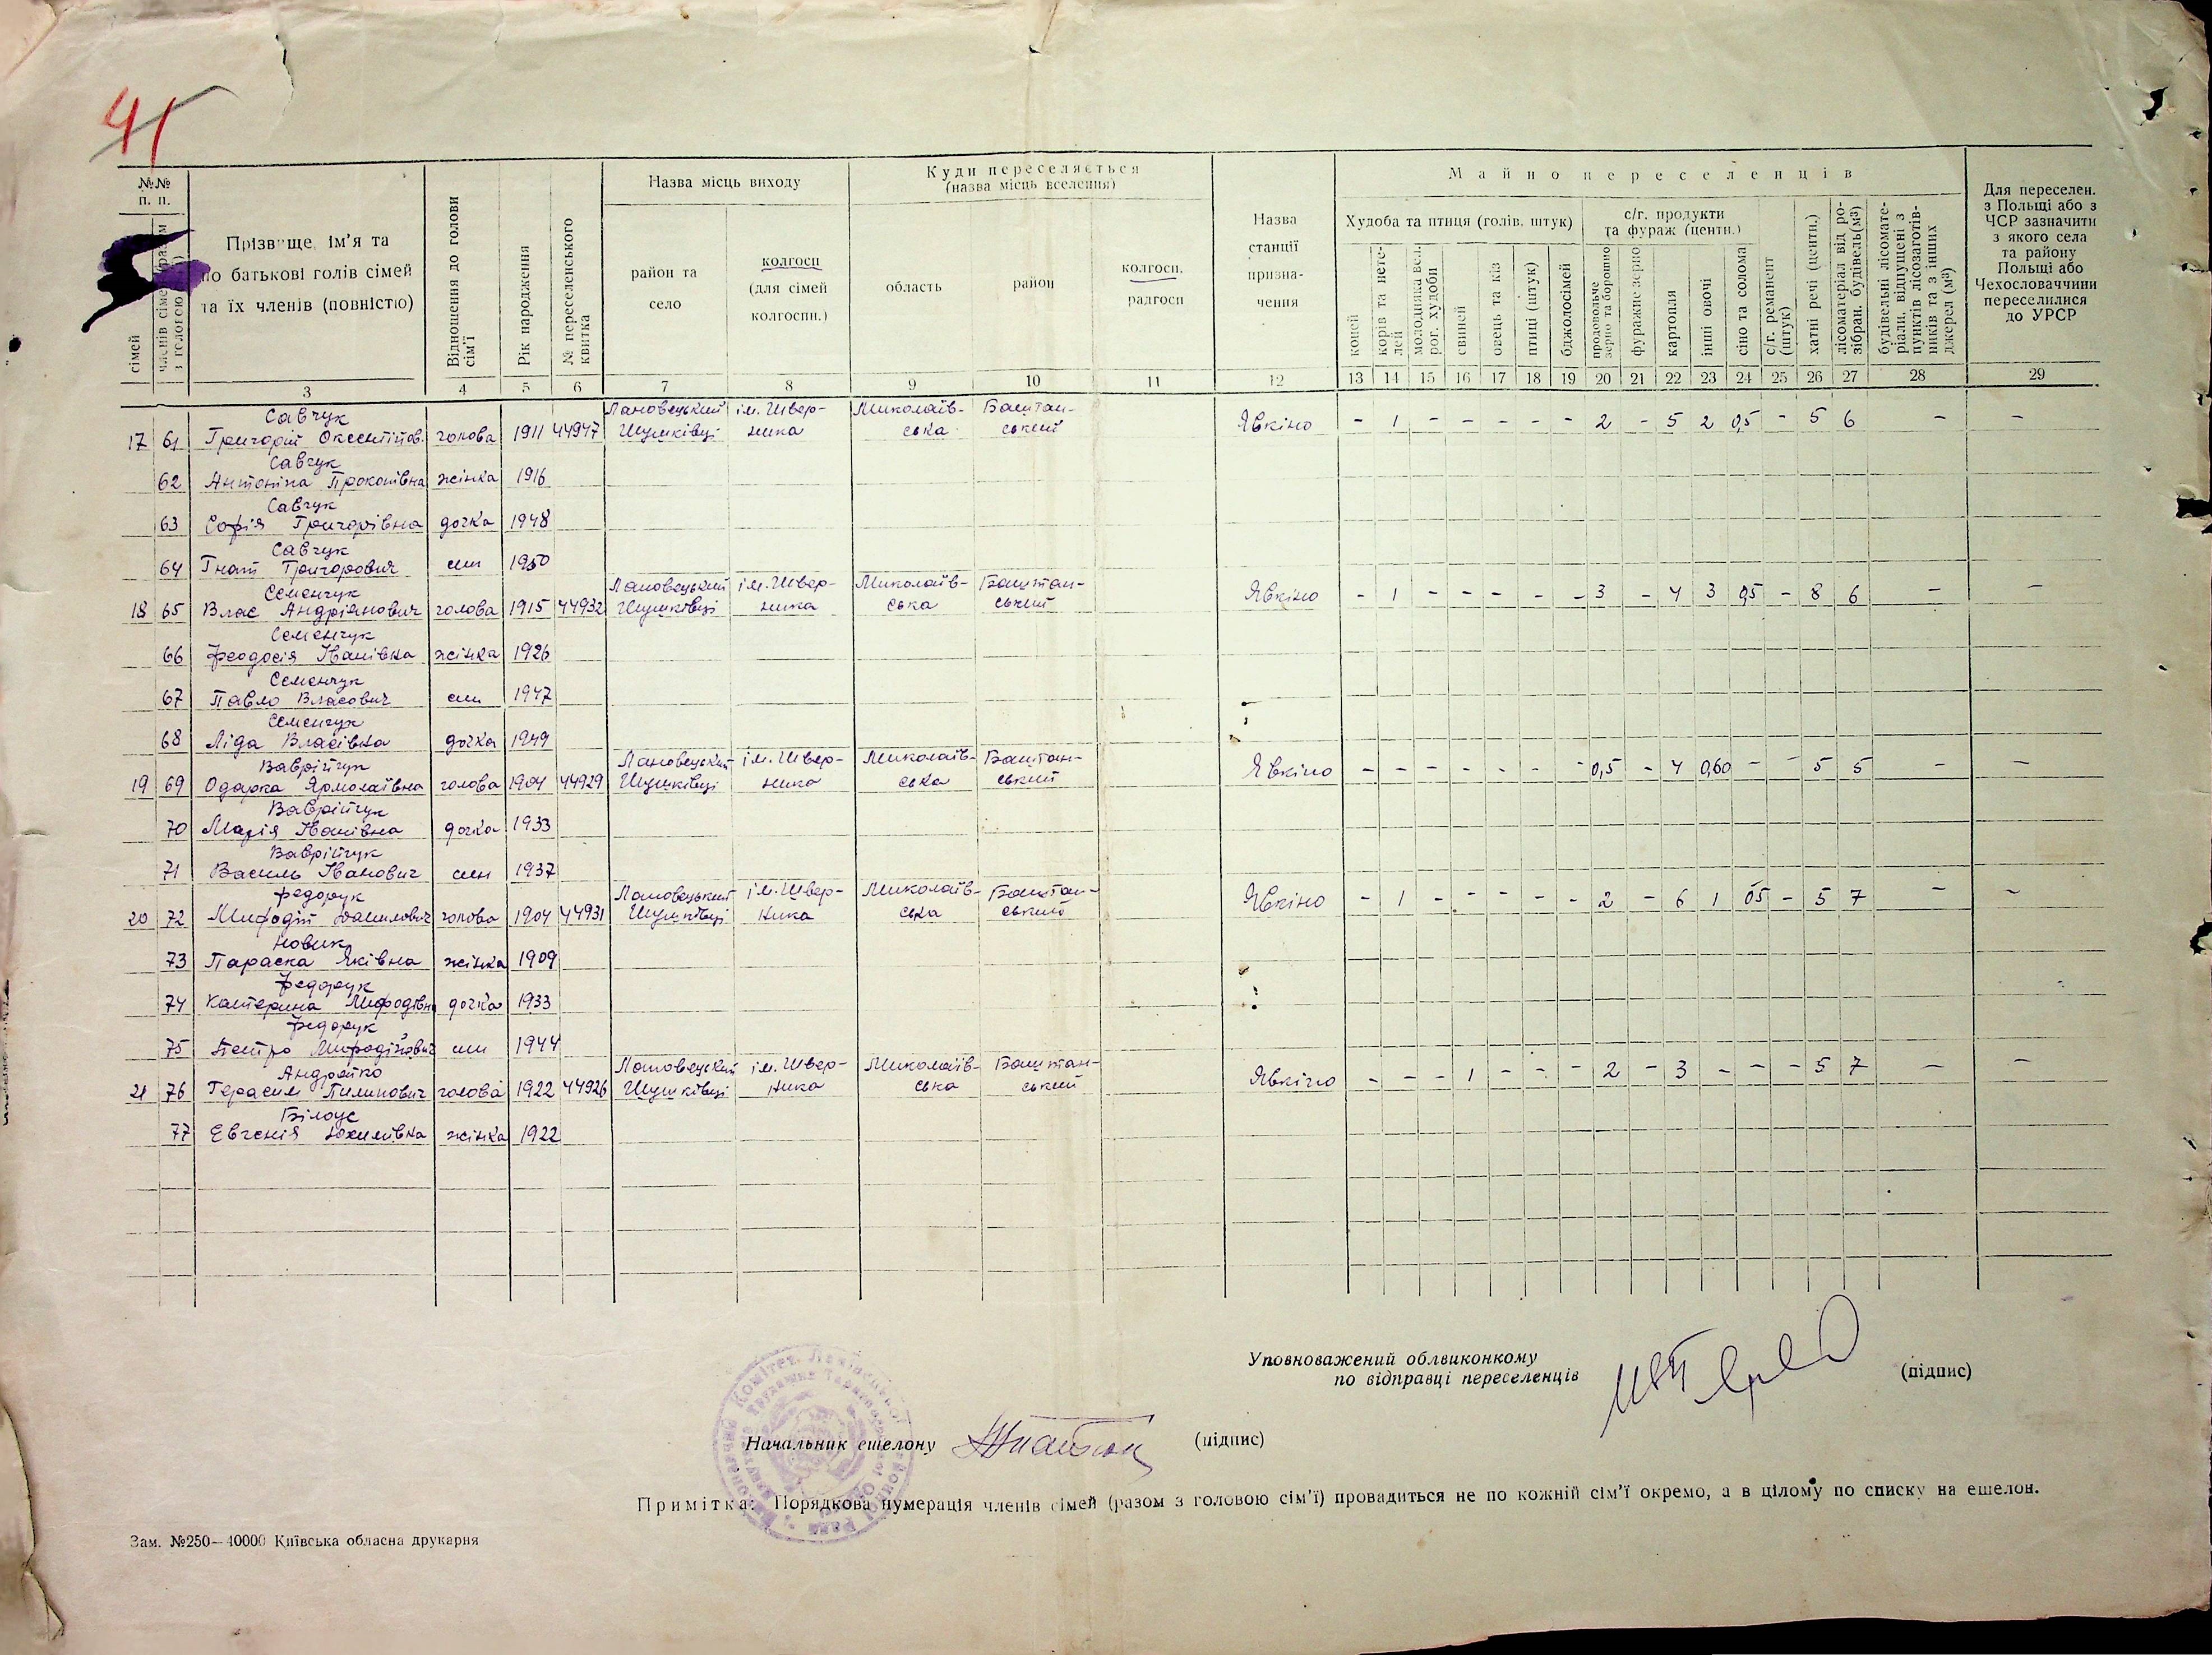 41
№№
п. п.
сімей
членів сімей (разом
з головою)
Прізвище, ім'я та
по батькові голів сімей
та їх членів (повністю)
Відношення до голови
сім'ї
Рік народження
№ переселенського
квитка
Назва місць виходу
район та
село
колгосп
(для сімей
колгоспн.)
Куди переселяється
(назва місць вселення)
область
район
колгосп.
радгосп
Назва
станції
призна-
чення
Майно переселенців
Худоба та птиця (голів. штук)
коней
корів та нете-
лей
молодняка вел.
рог. худоби
свиней
овець та кіз
птиці (штук)
бджолосімей
с/г. продукти
та фураж (центн.)
продовольче
зерно та борошно
фуражне зерно
картопля
інші овочі
сіно та солома
с/г. реманент
(штук)
хатні речі (центн.)
лісоматеріал від ро-
зібран. будівель(м³)
будівельні лісомате-
ріали, відпущені з
пунктів лісозаготів-
ників та з інших
джерел (м³)
Для переселен.
з Польщі або з
ЧСР зазначити
з якого села
та району
Польщі або
Чехословаччини
переселилися
до УРСР
3 4 5 6 7 8 9 10 11 12 13 14 15 16 17 18 19 20 21 22 23 24 25 26 27 28 29
Савчук Лановецький ім. Швер- Миколаїв- Баштан-
17 61 Григорій Оксентійов. голова 1911 44947 Шушківці ника ська ський Явкіно - 1 - - - - - 2 - 5 2 0,5 - 5 6 - -
Савчук
62 Антоніна Прокопівна жінка 1916
Савчук
63 Софія Григорівна дочка 1948
Савчук
64 Гнат Григорович син 1950
Семенчук Лановецький ім. Швер- Миколаїв- Баштан-
18 65 Влас Андріянович голова 1915 44932 Шушківці ника ська ський Явкіно - 1 - - - - - 3 - 4 3 0,5 - 8 6 - -
Семенчук
66 Феодосія Іванівна жінка 1926
Семенчук
67 Павло Власович син 1947
Семенчук
68 Ліда Власівна дочка 1949
Ваврійчук Лановецький ім. Швер- Миколаїв- Баштан-
19 69 Одарка Ярмолаївна голова 1904 44929 Шушківці ника ська ський Явкіно - - - - - - - 0,5 - 4 0,60 - - 5 5 - -
Ваврійчук
70 Марія Іванівна дочка 1933
Ваврійчук
71 Василь Іванович син 1937
Федорук Лановецький ім. Швер- Миколаїв- Баштан-
20 72 Мифодій Данилович голова 1904 44931 Шушківці ника ська ський Явкіно - 1 - - - - - 2 - 6 1 05 - 5 7 - -
Новик
73 Параска Яківна жінка 1909
Федорук
74 Катерина Мифодівна дочка 1933
Федорук
75 Петро Мифодійович син 1944
Андрейко Лановецький ім. Швер- Миколаїв- Баштан-
21 76 Герасим Пилипович голова 1922 44926 Шушківці ника ська ський Явкіно - - - 1 - - - 2 - 3 - - - 5 7 - -
Білоус
77 Евгенія Юхимівна жінка 1922
Уповноважений облвиконкому
по відправці переселенців
(підпис)
Начальник ешелону
(підпис)
Примітка: Порядкова нумерація членів сімей (разом з головою сім'ї) провадиться не по кожній сім'ї окремо, а в цілому по списку на ешелон.
Зам. №250—40000 Київська обласна друкарня